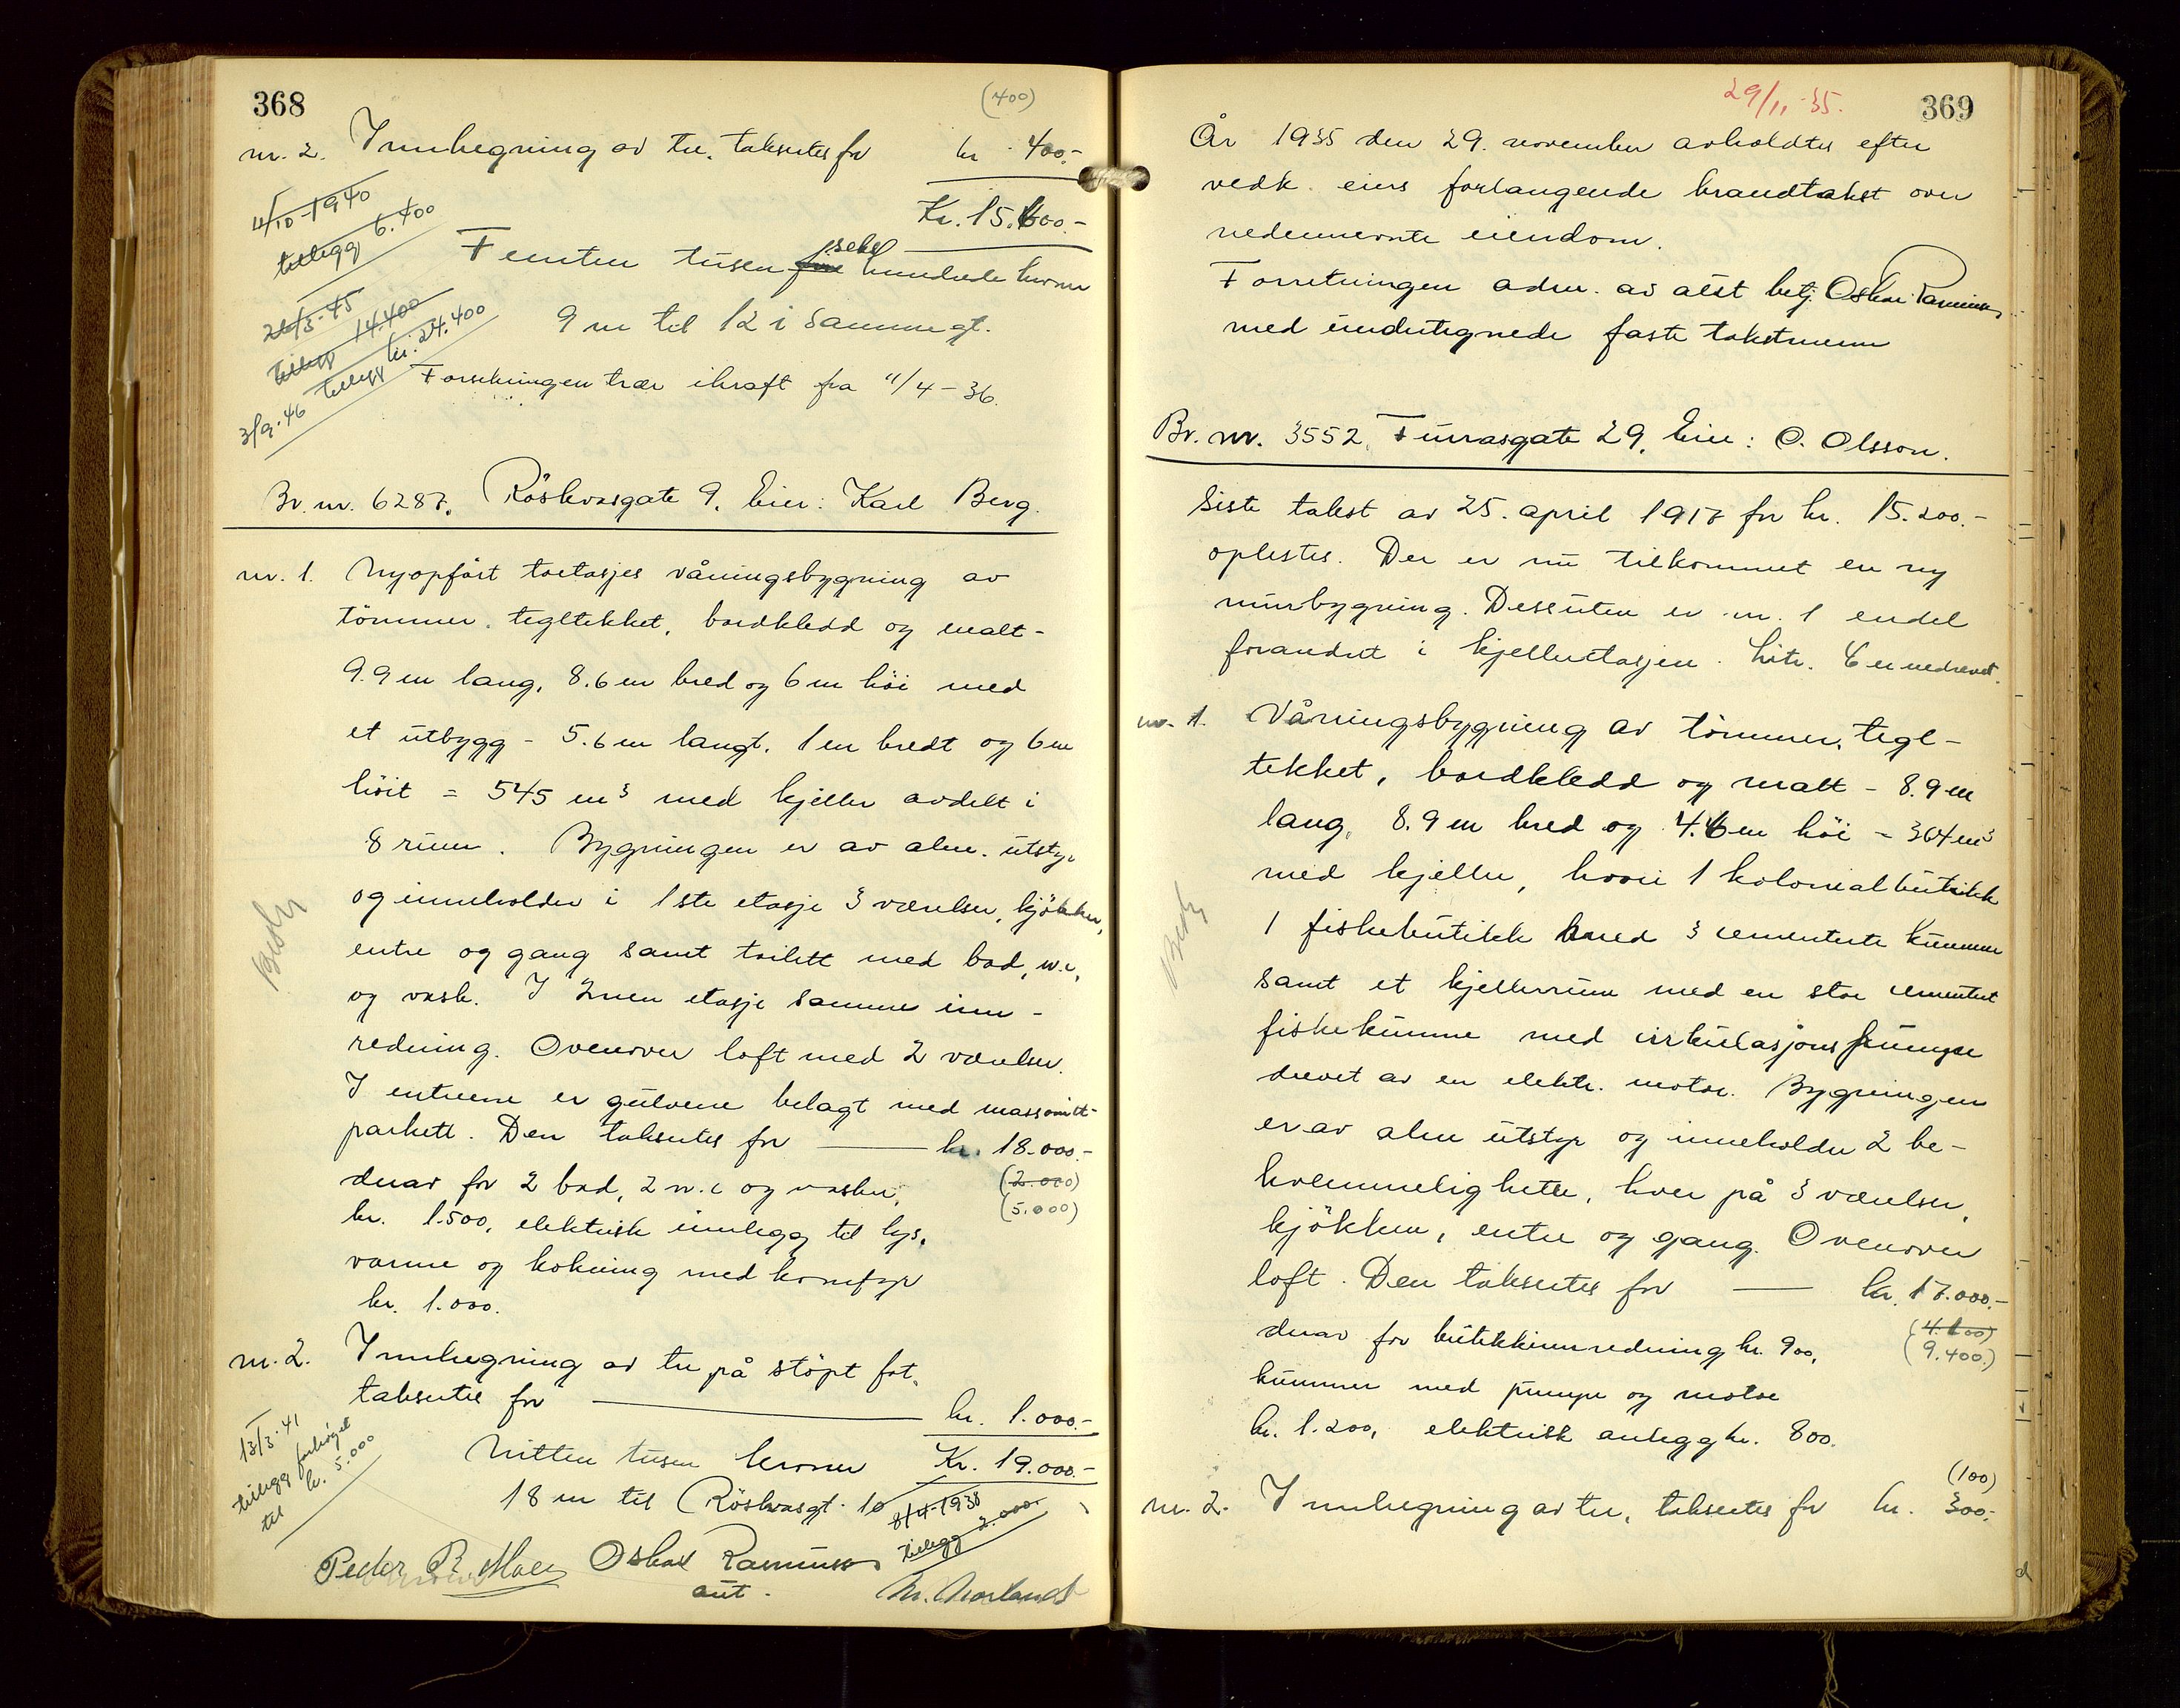 368
(400)
nr. 2. Innhegning av tre, takseres for kr 400.-
11/10-1940
tillegg 6.400
Kr. 15.600.-
Femten tusen fire seks hundrede kroner
26/3-45
tillegg 14.400
9 m til 12 i samme gt.
3/9-46 tillegg kr. 24.400
Forsikringen trær ikraft fra 11/4-36.
Br. nr. 6287. Röskvasgate 9. Eier: Karl Berg.
nr. 1. Nyopført toetasjes våningsbygning av
tömmer, tegltekket, bordkledd og malt -
9.9 m lang, 8.6 m bred og 6 m höi med
et utbygg - 5.6 m langt, 1 m bredt og 6 m
höit = 545 m³ med kjeller avdelt i
8 rum. Bygningen er av alm. utstyr
og inneholder i 1ste etasje 3 værelser, kjökken,
entre og gang samt toilett med bad, w.c,
og vask. I 2nen etasje samme inn-
redning. Ovenover loft med 2 værelser.
I entreene er gulvene belagt med massonitt-
parkett. Den takseres for kr. 18.000.-
derav for 2 bad, 2 w.c og vasker, (2.000)
kr. 1.500, elektrisk innlegg til lys, (5.000)
varme og kokning med komfyr
kr. 1.000.
nr. 2. Innhegning av tre på stöpt fot,
takseres for kr. 1.000.-
13/3-41
tillegg forhöiet
til kr. 5.000
Nitten tusen kroner Kr. 19.000.-
18 m til Röskvasgt. 10
8/4-1938
tillegg 2.000.-
Peder R. Moen Oskar Rasmussen
aut. N. Norland
29/11-35.
369
År 1935 den 29. november avholdtes efter
vedk. eiers forlangende brandtakst over
nedennevnte eiendom.
Forretningen adm. av aut betj. Oskar Rasmussen
med undertegnede faste takstmenn
Br. nr. 3552, Furrasgate 29, Eier: O. Olsson.
Siste takst av 25. april 1917 for kr. 15.200.-
oplestes. Der er nu tilkommet en ny
murbygning. Dessuten er nr. 1 endel
forandret i kjelleretasjen. Litr. C er nedrevet.
nr. 1. Våningsbygning av tömmer, tegl-
tekket, bordkledd og malt - 8.9 m
lang, 8.9 m bred og 4.6 m höi = 364 m³
med kjeller, hvori 1 kolonialbutikk
1 fiskebutikk med 3 cementerte kummer
samt et kjellerrum med en stor cementert
fiskekumme med cirkulasjonspumpe
drevet av en elektr. motor. Bygningen
er av alm utstyr og inneholder 2 be-
kvemmeligheter, hver på 3 værelser,
kjökken, entre og gang. Ovenover
loft. Den takseres for kr. 17.000.-
derav for butikkinnredning kr. 900,
(9.400.)
kummer med pumpe og motor
kr. 1.200, elektrisk anlegg kr. 800.
(100)
nr. 2. Innhegning av tre, takseres for kr. 300.-